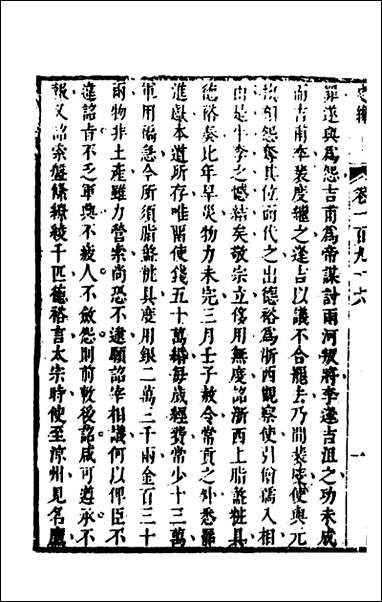 史緯
卷一百九十六
一
罪遂與爲怨吉甫爲帝謀討兩河叛將李逢吉沮之功未成
而吉甫卒裴度繼之逢吉以議不合罷去乃間裴度使與元
稹相怨奪其位而代之出德裕爲浙西觀察使引僧孺入相
由是牛李之憾結矣敬宗立侈用無度詔浙西上脂盝粧具
德裕奏比年旱災物力未完三月壬子赦令常貢之外悉罷
進獻本道所存唯留使錢五十萬緡每歲經費常少十三萬
軍用褊急今所須脂盝粧具度用銀二萬三千兩金百三十
兩物非土產雖力營索尚恐不逮願詔宰相議何以俾臣不
違詔旨不乏軍興不疲人不斂怨則前敕後詔咸可遵承不
報又詔索盤絛繚綾千匹德裕言太宗時使至涼州見名鷹